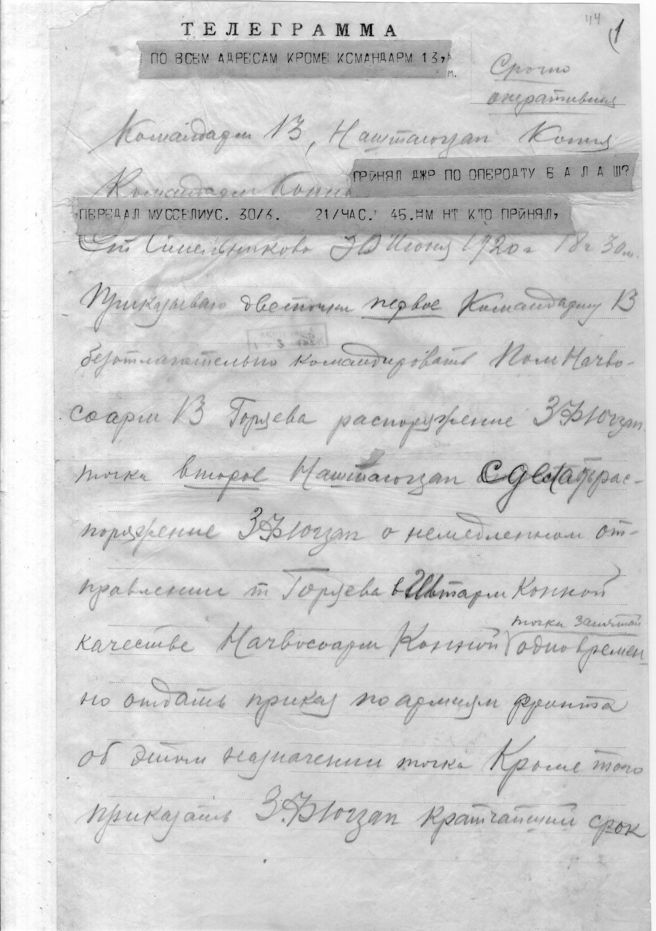 44
1
ТЕЛЕГРАММА
ПО ВСЕМ АДРЕСАМ КРОМЕ КСМАНДАРМ 13,
м.
Срочно
оперативная
Командарм 13, Наштаюгзап Копия
Командарм Конно
ПРИНЯЛ ДЖР ПО ОПЕРОДТУ Б А Л А Ш?
ПЕРЕДАЛ МУССЕЛИУС. 30/6. 21/ЧАС. 45.НМ НТ КТО ПРИНЯЛ,
Ст Синельниково 30 Июня 1920 г 18 ч 30 м.
Приказываю двоеточие первое Командарму 13
безотлагательно командировать ПомНачво-
соарм 13 Горяева распоряжение ЗФЮгзап
точка второе Наштаюгзап сделать рас-
поряжение ЗФЮгзап о немедленном от-
правлении т Горяева в Штарм Конной
точка запятая
качестве Начвосоарм Конной одновремен-
но отдать приказ по армиям фронта
об этом назначении точка Кроме того
приказать ЗФЮгзап кратчайший срок